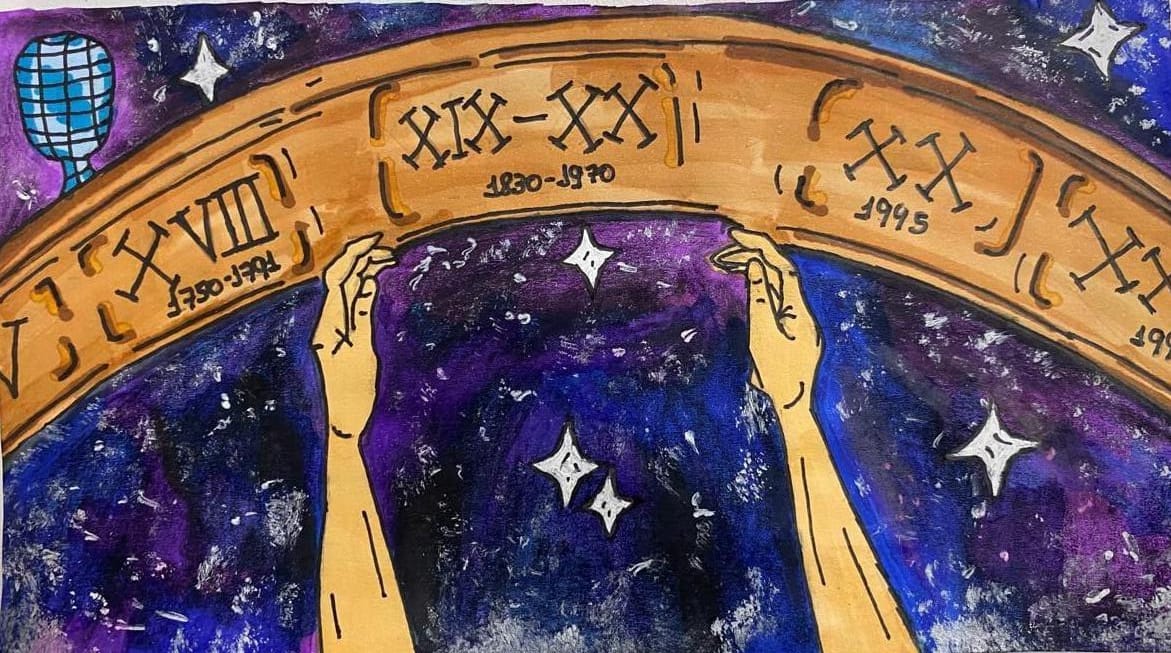 V
XVIII
1750-1791
XIX-XX
1830-1970
XX
1995
199